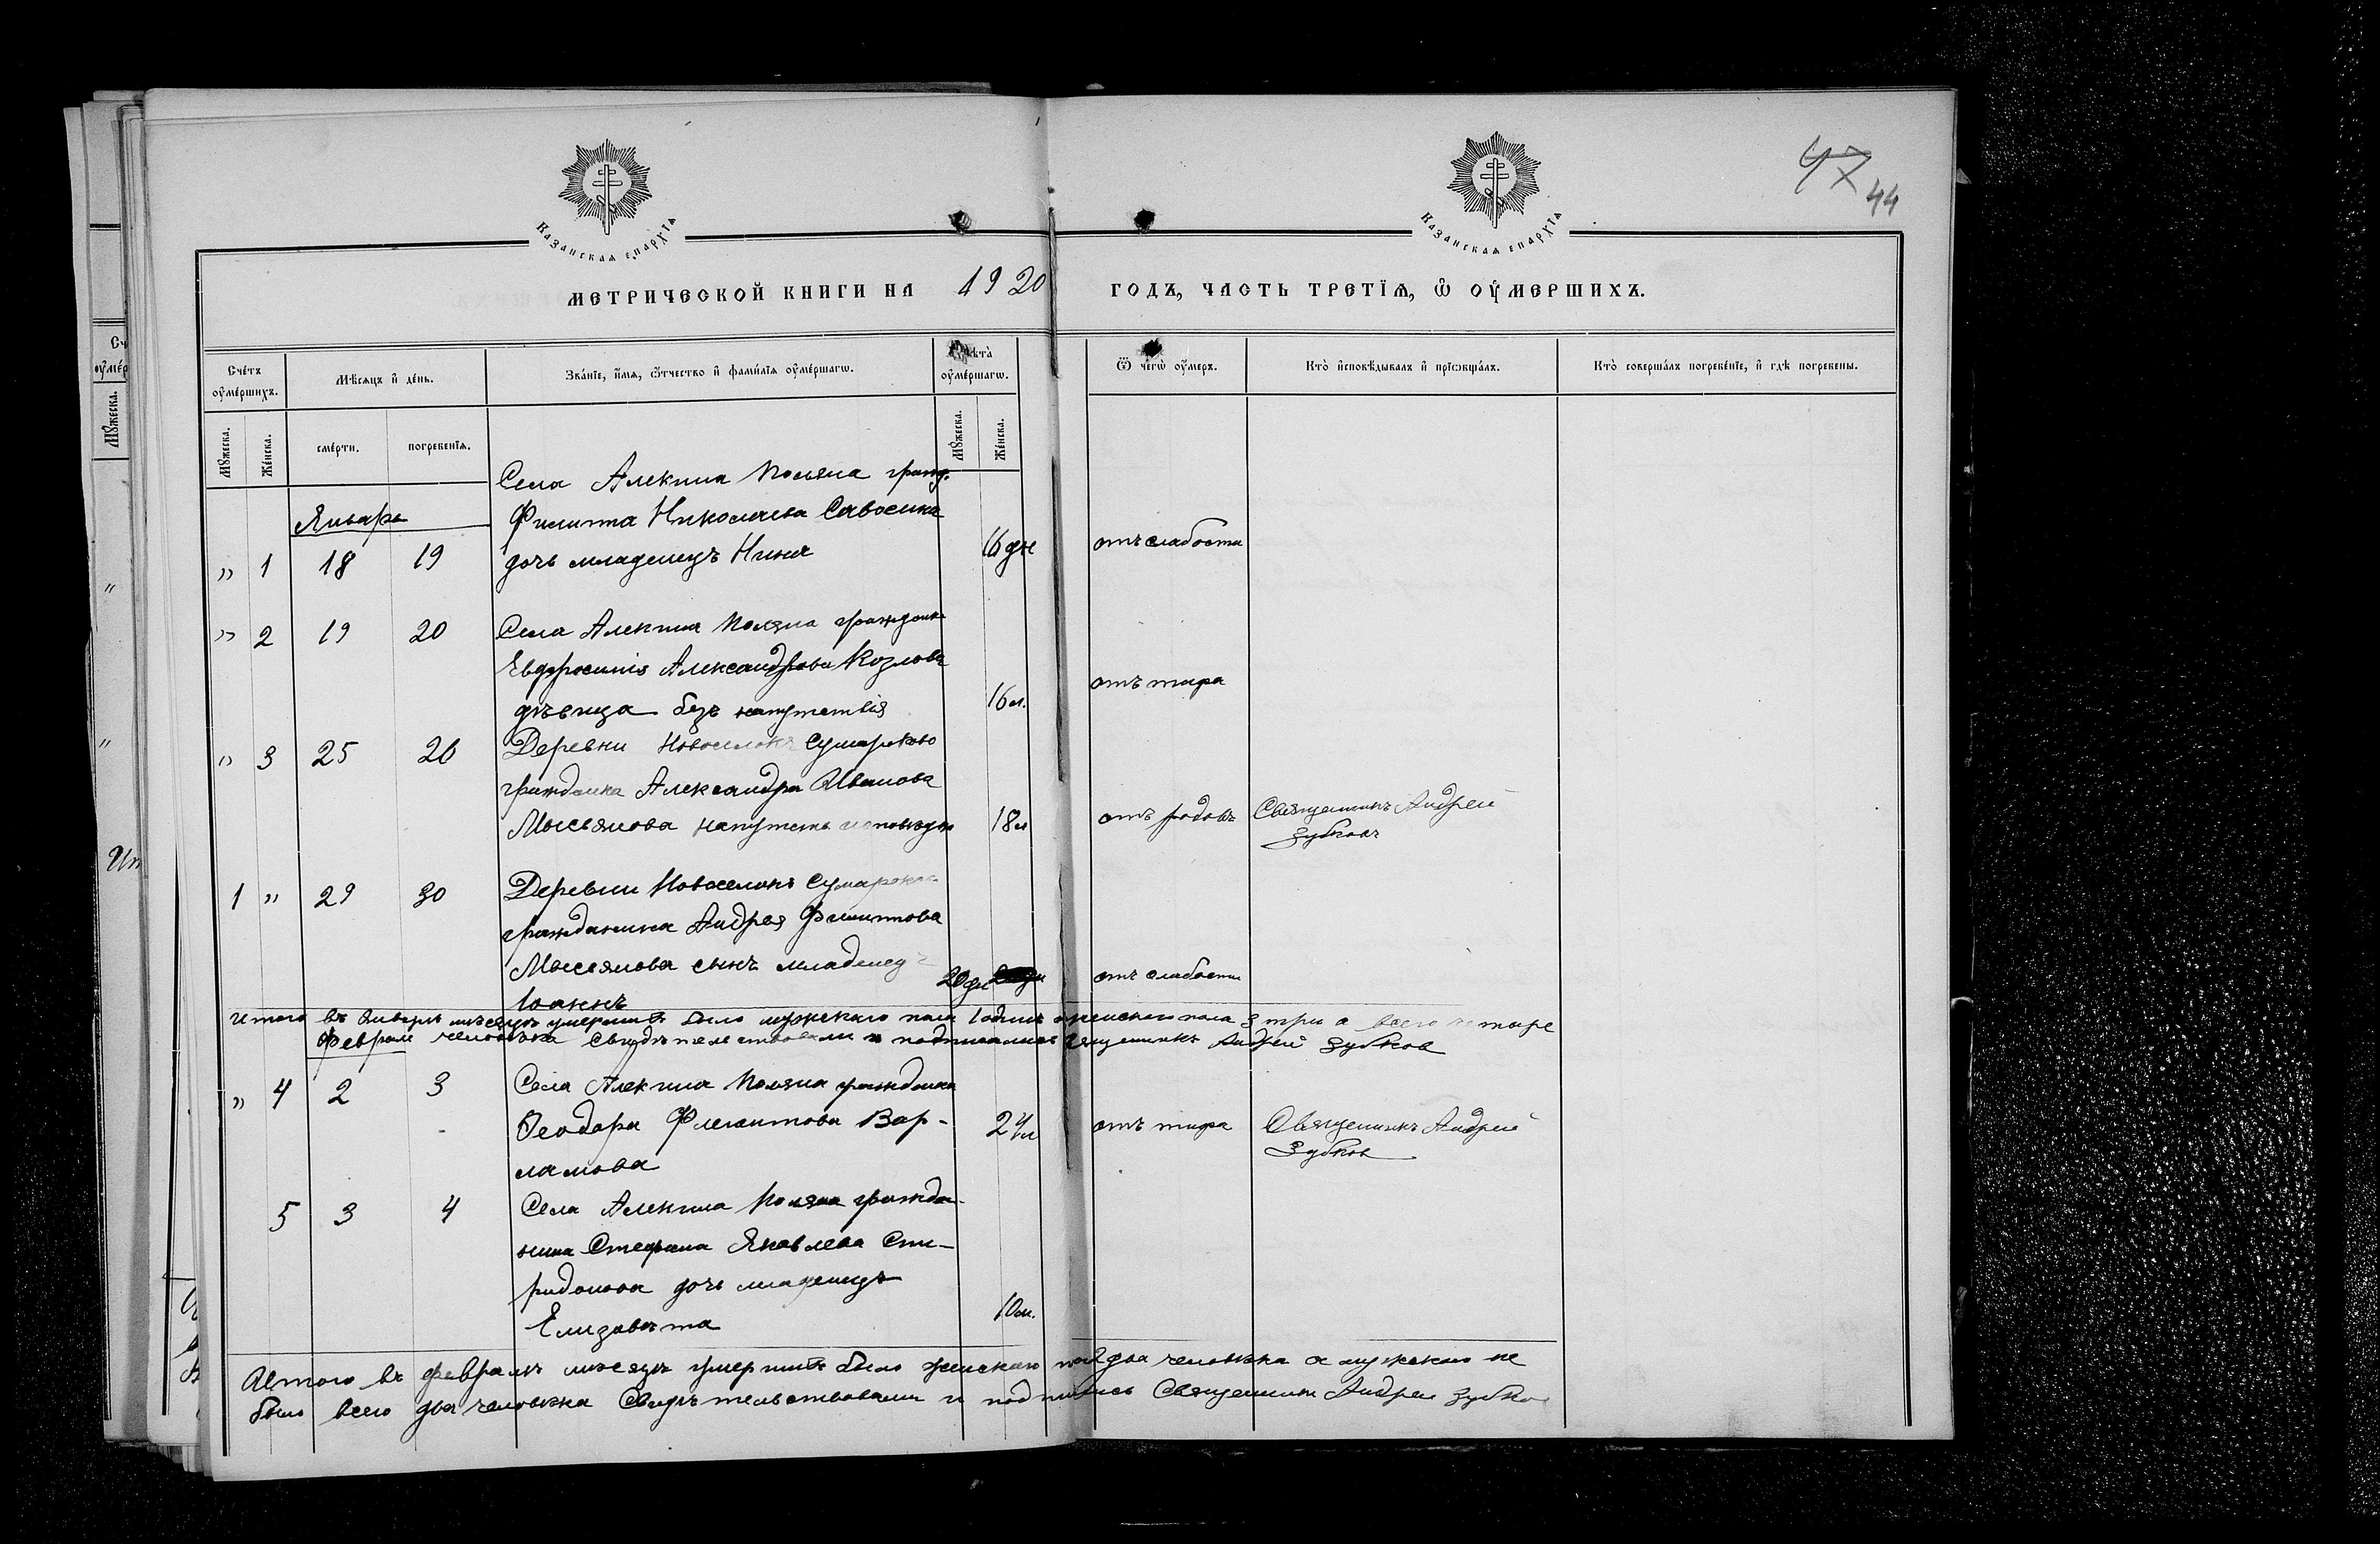 47 44
Казанская епархїа
Казанская епархїа
МЕТРИЧЕСКОЙ КНИГИ НА 1920 ГОДЪ, ЧАСТЬ ТРЕТІЯ, Ѿ ОУМЕРШИХЪ.
Счетъ оумершихъ.
Мѣсяцъ и день.
Званїе, имя, ѿчество и фамилїя оумершагѡ.
Лѣта оумершагѡ.
Ѿ чегѡ оумеръ.
Кто исповѣдывалъ и прїѡбщалъ.
Кто совершалъ погребенїе, и гдѣ погребены.
Мужеска.
Женска.
смерти.
погребенїя.
Мужеска.
Женска.
Села Алекина Поляна гражд.
Январь
Филиппа Николаева Савосина
" 1 18 19 дочь младенецъ Нина 16 дн отъ слабости
" 2 19 20 Села Алекина Поляна гражданк
Евфросинія Александрова Козлова
дѣвица безъ напутствія 16 л. отъ тифа
" 3 25 26 Деревни Новоселокъ Сумароково
гражданка Александра Иванова
Мысьямова напутств исповѣдан 18 л отъ родовъ Священникъ Андрей
Зубковъ
1 " 29 30 Деревни Новоселокъ Сумароково
гражданина Андрея Филиппова
Мысьямова сынъ младенецъ 20 дн отъ слабости
Іоаннъ
Итого въ Январѣ мѣсяцѣ умершихъ было мужского пола 1 одинъ женского пола 3 три а всего четыре
Февраль человѣка Свидѣтельствовали и подписались Священникъ Андрей Зубков
" 4 2 3 Села Алекина Поляна гражданка
Ѳеодора Флегонтова Вар-
ламова 24 л отъ тифа Священникъ Андрей
Зубков
5 3 4 Села Алекина Поляна гражда-
нина Стефана Яковлева Спи-
ридонова дочь младенецъ
Елизавета 10 м.
Итого въ февралѣ мѣсяцѣ умершихъ было женскаго пола 2 два человѣка а мужского не
было всего два человѣка Свидѣтельствовали и подписись Священник Андрей Зубко